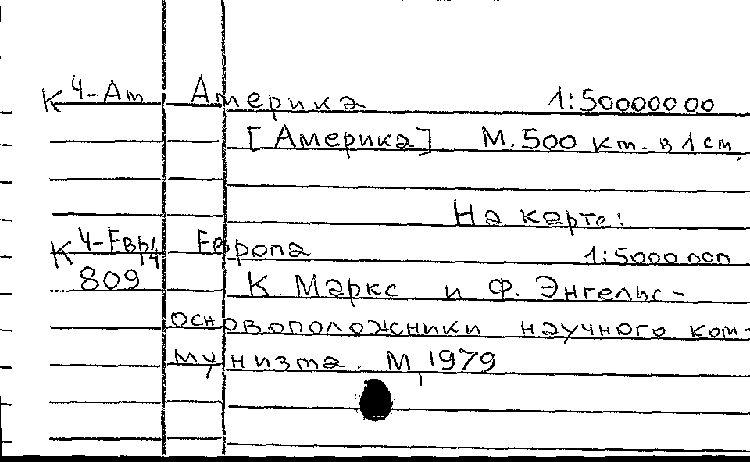 К 4-Ам Америка 1:50000000
[Америка] М. 500 км. в 1 см.
На карте:
К 4-Евр Европа 1:5000000
809 К Маркс и Ф. Энгельс-
основоположники научного ком-
мунизма. М, 1979